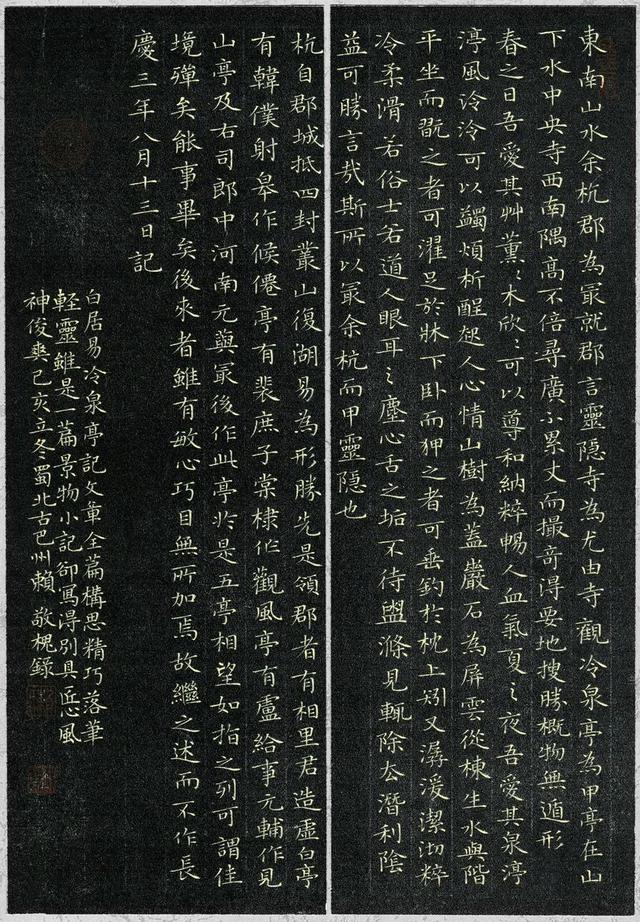 東南山水余杭郡為冣就郡言靈隱寺為尤由寺觀冷泉亭為甲亭在山
下水中央寺西南隅高不倍尋廣不累丈而撮奇得要地搜勝概物無遁形
春之日吾愛其艸薰〻木欣〻可以導和納粹暢人血氣夏之夜吾愛其泉渟
渟風泠泠可以蠲煩析酲起人心情山樹為蓋巖石為屏雲從棟生水與階
平坐而翫之者可濯足於牀下卧而狎之者可垂釣於枕上矧又潺湲潔沏粹
冷柔滑若俗士若道人眼耳之塵心舌之垢不待盥滌見輒除去潛利陰
益可勝言哉斯所以冣余杭而甲靈隱也
杭自郡城抵四封叢山復湖易為形勝先是領郡者有相里君造虛白亭
有韓僕射皋作候僊亭有裴庶子棠棣作觀風亭有盧給事元輔作見
山亭及右司郎中河南元藇冣後作此亭於是五亭相望如指之列可謂佳
境殫矣能事畢矣後來者雖有敏心巧目無所加焉故繼之述而不作長
慶三年八月十三日記
白居易冷泉亭記文筆全篇構思精巧落筆
輕靈雖是一篇景物小記卻寫得別具匠心風
神俊爽己亥立冬蜀北古巴州賴敬槐錄